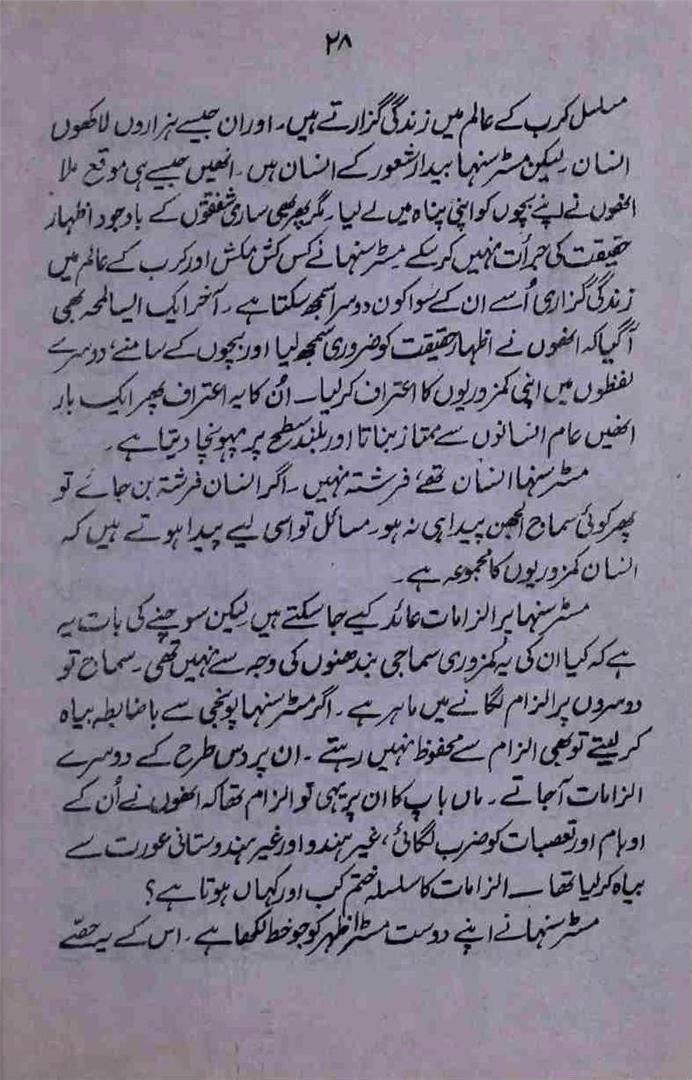 ۲۸
مسلسل کرب کے عالم میں زندگی گزارتے ہیں۔ اور ان جیسے ہزاروں لاکھوں
انسان۔ لیکن مسٹر سنہا بیدار شعور کے انسان ہیں۔ انھیں جیسے ہی موقع ملا
انھوں نے اپنے بچوں کو اپنی پناہ میں لے لیا۔ مگر پھر بھی ساری شفقتوں کے باوجود اظہار
حقیقت کی جرأت نہیں کر سکے مسٹر سنہا نے کس کش مکش اور کرب کے عالم میں
زندگی گزاری اُسے ان کے سوا کون دوسرا سمجھ سکتا ہے۔ آخر ایک ایسا لمحہ بھی
آ گیا کہ انھوں نے اظہار حقیقت کو ضروری سمجھ لیا اور بچوں کے سامنے، دوسرے
لفظوں میں اپنی کمزوریوں کا اعتراف کر لیا۔ اُن کا یہ اعتراف پھر ایک بار
انھیں عام انسانوں سے ممتاز بناتا اور بلند سطح پر پہونچا دیتا ہے۔
مسٹر سنہا انسان تھے، فرشتہ نہیں۔ اگر انسان فرشتہ بن جائے تو
پھر کوئی سماج الجھن پیدا ہی نہ ہو۔ مسائل تو اسی لیے پیدا ہوتے ہیں کہ
انسان کمزوریوں کا مجموعہ ہے۔
مسٹر سنہا پر الزامات عائد کیے جا سکتے ہیں لیکن سوچنے کی بات یہ
ہے کہ کیا ان کی یہ کمزوری سماجی بندھنوں کی وجہ سے نہیں تھی۔ سماج تو
دوسروں پر الزام لگانے میں ماہر ہے۔ اگر مسٹر سنہا پونجی سے باضابطہ بیاہ
کر لیتے تو بھی الزام سے محفوظ نہیں رہتے۔ ان پر دس طرح کے دوسرے
الزامات آجاتے۔ ماں باپ کا ان پر یہی تو الزام تھا کہ انھوں نے اُن کے
اوہام اور تعصبات کو ضرب لگائی، غیر ہندو اور غیر ہندوستانی عورت سے
بیاہ کر لیا تھا۔ الزامات کا سلسلہ ختم کب اور کہاں ہوتا ہے؟
مسٹر سنہا نے اپنے دوست مسٹر اظہر کو جو خط لکھا ہے۔ اس کے یہ حصّے